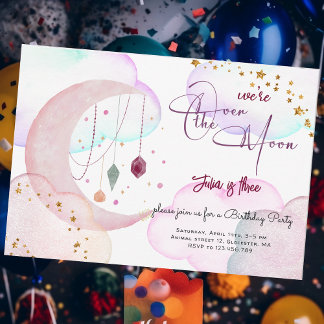 we're
Over
the Moon
Julia is three
please join us for a Birthday Party
Saturday, April 19th, 3-5 pm
Animal street 12, Glocester, MA
RSVP to 123.456.789